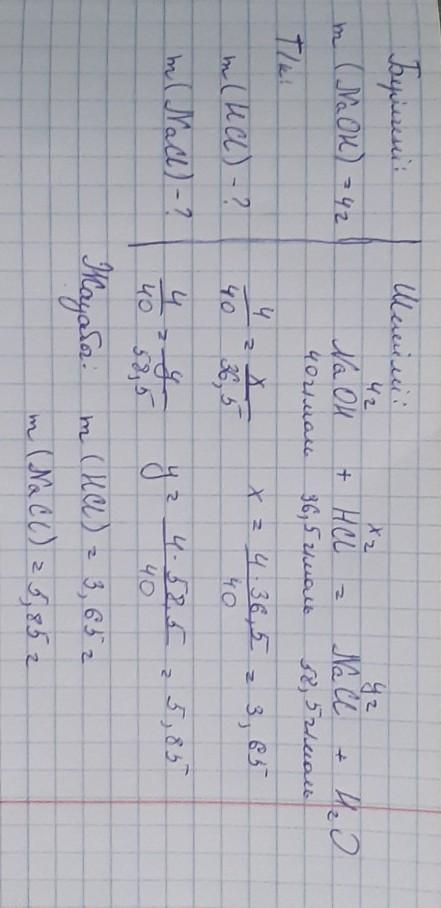 Берілгені:
m (NaOH) = 4г
Т/к:
m (HCl) - ?
m (NaCl) - ?
Шешімі:
4г xг yг
NaOH + HCl = NaCl + H₂O
40г/моль 36,5г/моль 58,5г/моль
4/40 = x/36,5 x = 4·36,5/40 = 3,65
4/40 = y/58,5 y = 4·58,5/40 = 5,85
Жауабы: m (HCl) = 3,65г
m (NaCl) = 5,85г